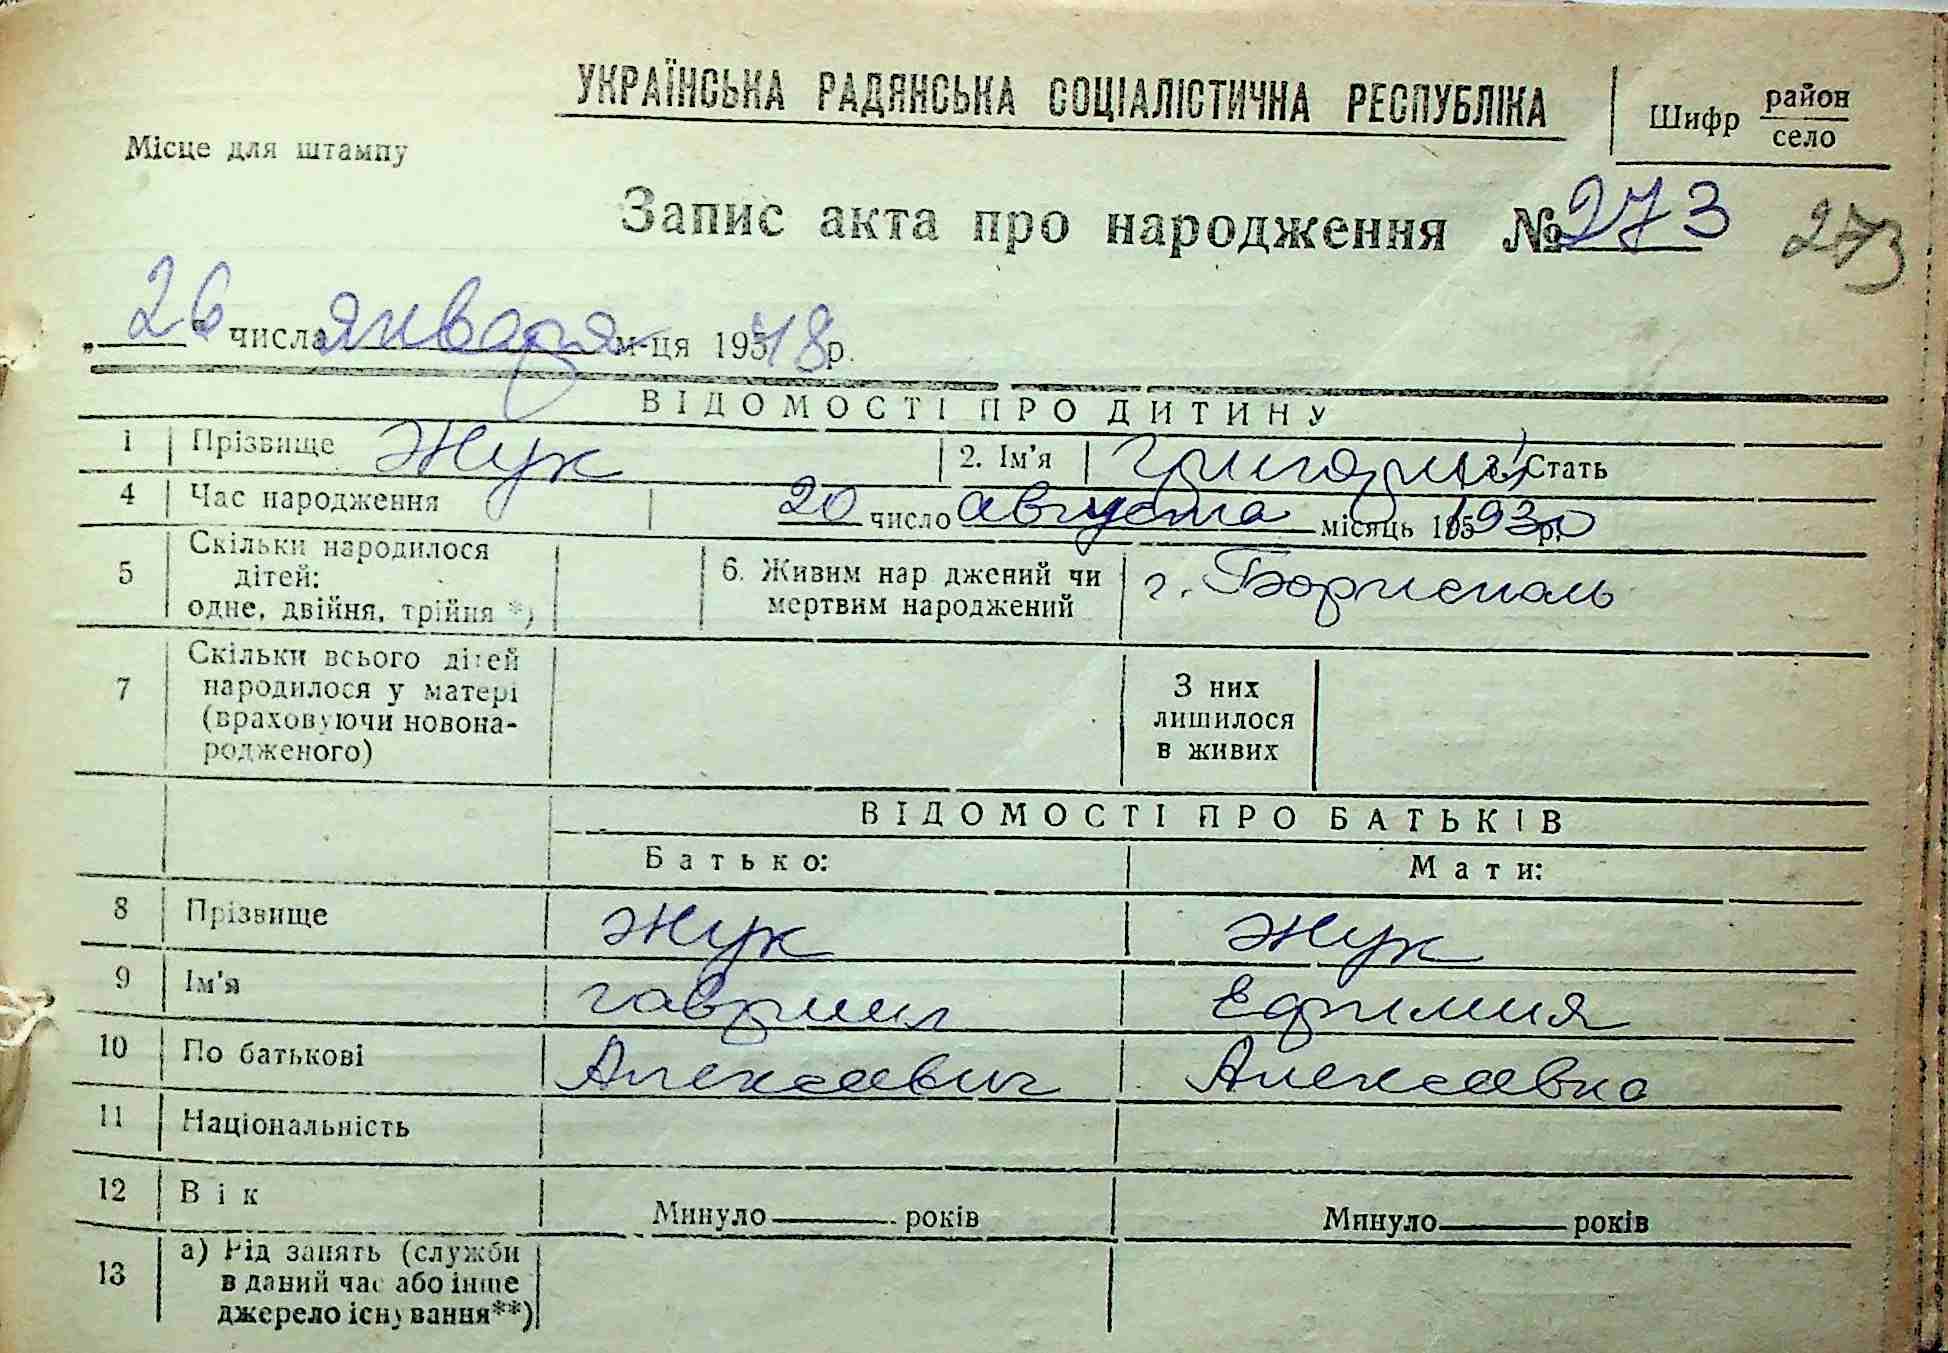 УКРАЇНСЬКА РАДЯНСЬКА СОЦІАЛІСТИЧНА РЕСПУБЛІКА
Шифр район
село
Місце для штампу
Запис акта про народження № 273 273
„ 26 " числа января м-ця 195 48 р.
ВІДОМОСТІ ПРО ДИТИНУ
1 Прізвище Жук 2. Ім'я Григорий 3. Стать
4 Час народження 20 число августа місяць 195 1930 р.
5 Скільки народилося
дітей:
одне, двійня, трійня *)
6. Живим нар дженим чи
мертвим народжений
г. Борисполь
7 Скільки всього дітей
народилося у матері
(враховуючи новона-
родженого)
З них
лишилося
в живих
ВІДОМОСТІ ПРО БАТЬКІВ
Батько: Мати:
8 Прізвище Жук Жук
9 Ім'я Гавриил Ефимия
10 По батькові Алексеевич Алексеевна
11 Національність
12 Вік Минуло роківМинуло років
13 а) Рід занять (служби
в даний час або інше
джерело існування**)